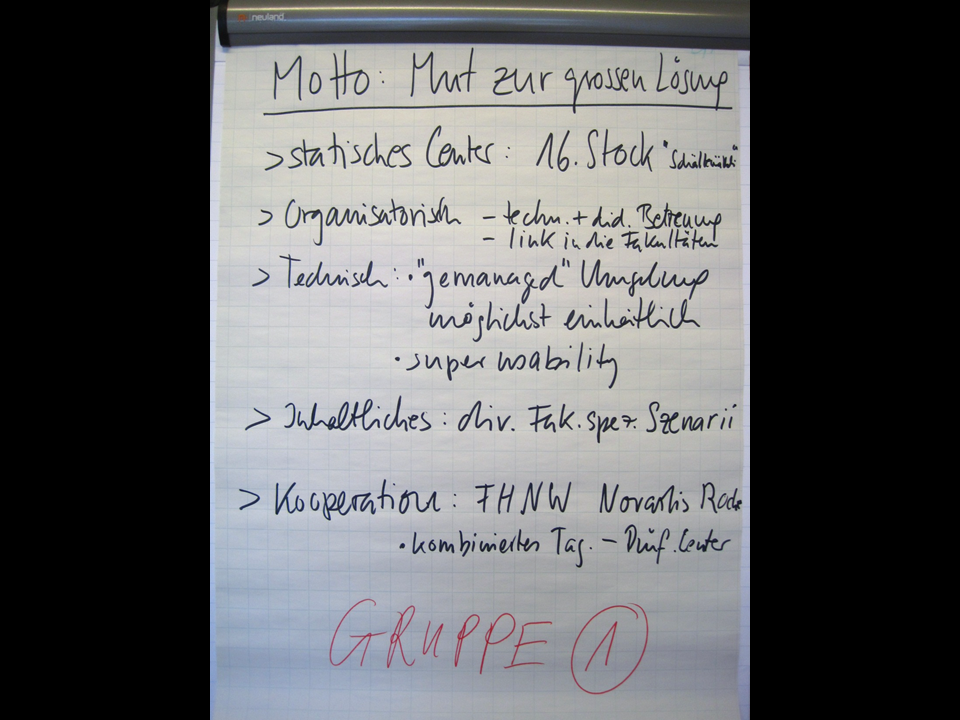 neuland
Motto: Mut zur grossen Lösung
> statisches Center: 16. Stock
> Organisatorisch - techn. + did. Betreuung
- link in die Fakultäten
> Technisch: • "gemanaged" Umgebung
möglichst einheitlich
• super usability
> Inhaltliches: div. Fak. spez. Szenarii
> Kooperation: FHNW Novartis Roche
• kombiniertes Tag. - Prüf. Center
GRUPPE 1